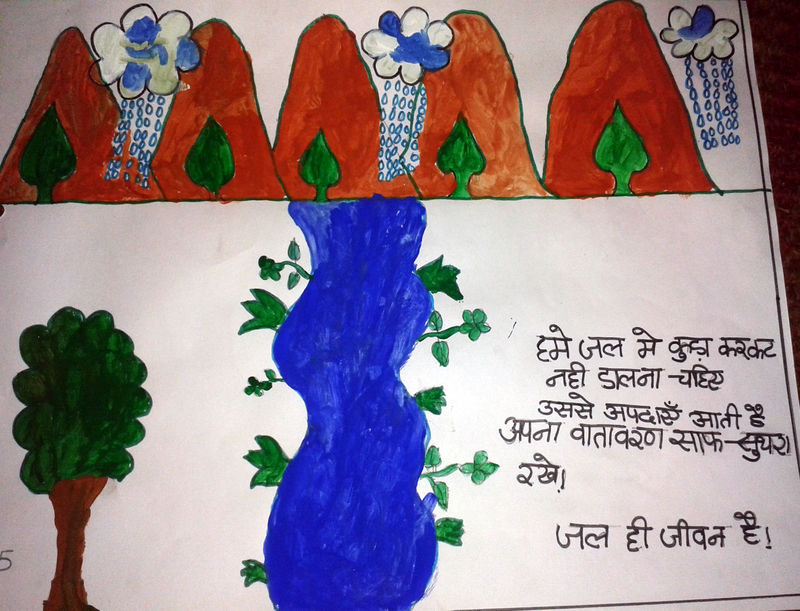 हमे जल मे कुड़ा करकट
नही डालना चहिए
उससे अपदाएँ आती है
अपना वातावरण साफ-सुथरा
रखे!
जल ही जीवन है!
5